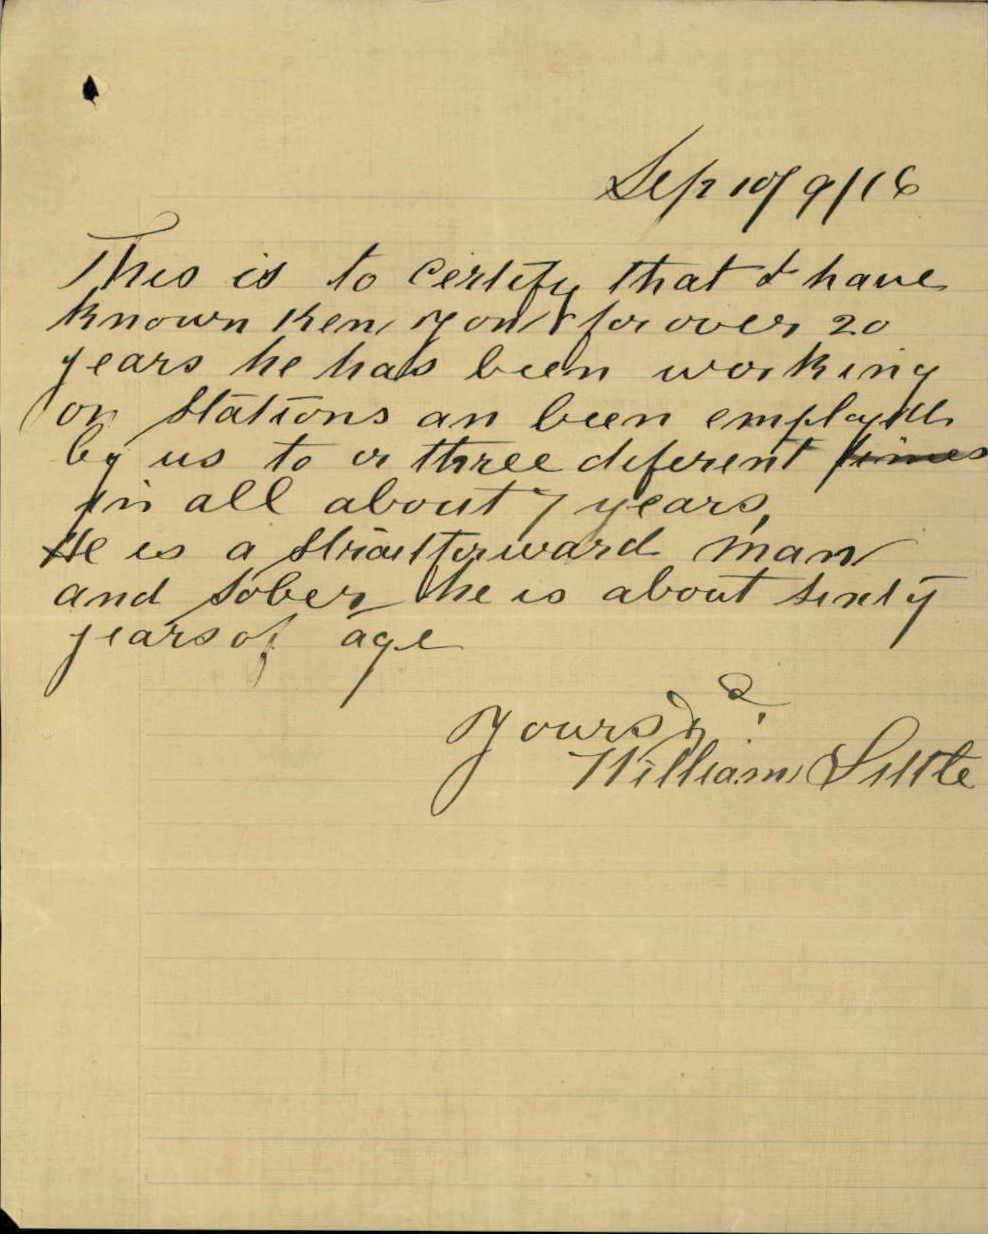 Sep 10/9/16
This is to certify that I have
known Ken You for over 20
years he has been working
on stations an been employed
by us to or three diferent times
in all about 7 years,
He is a straitforward man
and sober he is about sixty
years of age
Yours
William Little